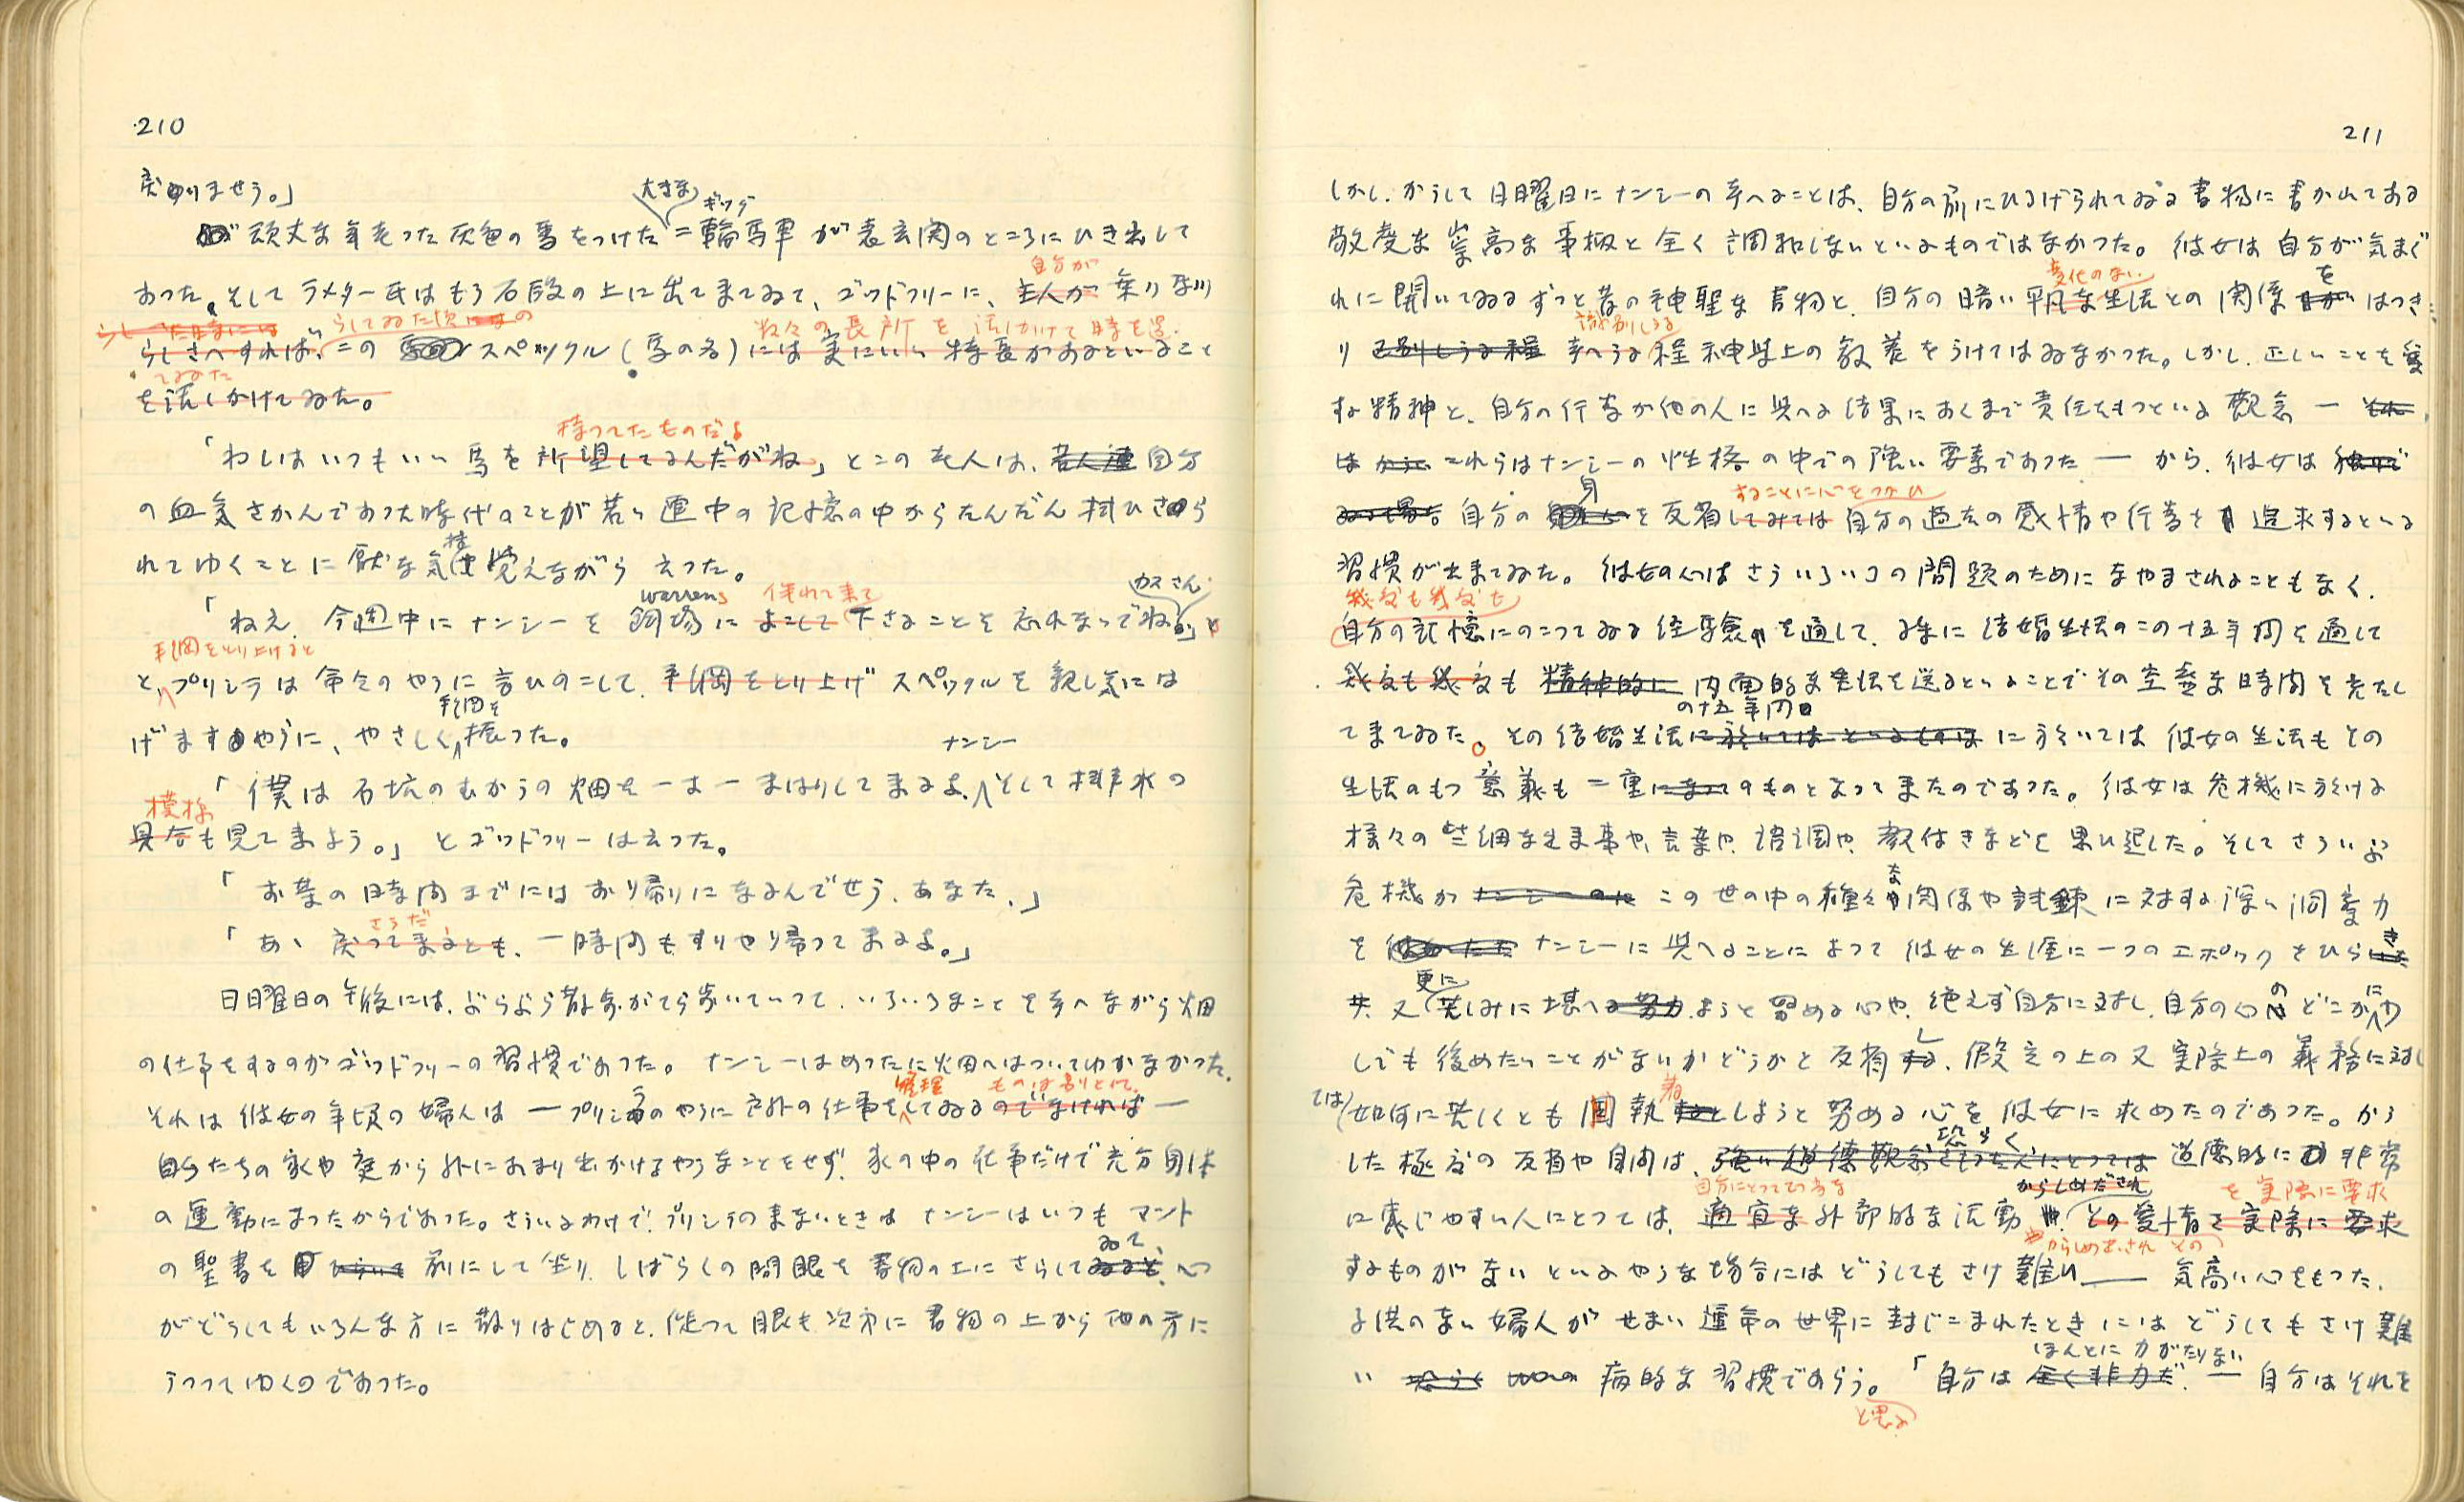 210
戻りませう。」
頑丈な年老つた灰色の馬をつけた大きな二輪馬車ギッグが表玄関のところにひき出して
あつた。そしてラメター氏はもう石段の上に出て来てゐて、ゴッドフリーに、自分が主人が乗り馴
らしさへすれば、この スペックル(馬の名)には実にいい特長があるといふこと
らしてゐた頃の 数々の長所を話しかけて時を過
てゐた
を話しかけてゐた。
持つてたものだよ
「わしはいつもいい馬を所望してるんだがね」とこの老人は、自分
の血気さかんであつた時代のことが若い連中の記憶の中からだんだん拭ひさら
れてゆくことに厭な気持を覚えながら云つた。
warrens 連れて来て カスさん
「ねえ、今週中にナンシーを飼場によこして下さることを忘れないでね」と
手綱をとり上げると
と、プリシラは命令のやうに言ひのこして、手綱をとり上げスペックルを親し気には
げますやうに、やさしく手綱を振つた。
ナンシー
「僕は石坑のむかうの畑を一寸一まはりして来るよ、そして排水の
模様
具合も見て来よう。」とゴッドフリーは云つた。
「お茶の時間までにはお帰りになるんでせう、あなた。」
さうだ
「あゝ戻つて来るとも、一時間もすりや帰つて来るよ。」
日曜日の午後には、ぶらぶら散歩がてら歩いていつて、いろいろなことを考へながら畑
の仕事をするのがゴッドフリーの習慣であつた。ナンシーはめつたに畑へはついてゆかなかつた。
管理 ものは別として
それは彼女の年頃の婦人は ー プリシラのやうに戸外の仕事をしてゐるのでなければ ー
自分たちの家や庭から外にあまり出かけるやうなことをせず、家の中の仕事だけで充分身体
の運動になつたからであつた。さういふわけで、プリシラの来ないときはナンシーはいつもマント
の聖書を 前にして坐り、しばらくの間眼を書物の上にさらしてゐて、心
がどうしてもいろんな方に散りはじめると、従つて眼も次第に書物の上から他の方に
うつつてゆくのであつた。
211
しかし、かうして日曜日にナンシーの考へることは、自分の前にひろげられてゐる書物に書かれてある
敬虔な崇高な事柄と全く調和しないといふものではなかつた。彼女は自分が気まぐ
変化のない
れに開いてゐるずつと昔の神聖な書物と、自分の暗い平凡な生活との関係をはつき
識別しうる
り区別しうる程 考へうる程神学上の教養をうけてはゐなかつた。しかし、正しいことを愛
する精神と、自分の行為が他の人に与へる結果にあくまで責任をもつといふ観念 ー それ
は これらはナンシーの性格の中での強い要素であつた ー から、彼女は
することに心をつかひ
自分の 身を反省してみては自分の過去の感情や行為を追求するといふ
習慣が出来てゐた。彼女の心はさういろいろの問題のためになやまされることもなく、
幾度も幾度も
自分の記憶にのこつてゐる経験を通して、殊に結婚生活のこの十五年間を通して
幾度も幾度も 精神的に 内面的な生活を送るといふことでその空虚な時間を充たし
の十五年間
て来てゐた。その結婚生活に於いては といふものは に於いては彼女の生活もその
生活のもつ意義も二重になつてのものとなつて来たのであつた。彼女は危機に於ける
様々の些細な出来事や、言葉や、語調や、顔付きなどを思ひ起した。そしてさういふ
危機が この世の中の種々な関係や試錬に対する深い洞察力
を ナンシーに与へることによつて彼女の生涯に一つのエポックをひらき
更に
又苦しみに堪へようと努める心や、絶えず自分に対し、自分の心のどこかにや
しても後めたいことがないかどうかと反省し、假定の上の又実際上の義務に対し
ては 如何に苦しくとも固執しようと努める心を彼女に求めたのであつた。かう
恐らく
した極度の反省や自問は、 道徳的に非常
自分にとつて からしめだされ を実際に要求
に感じやすい人にとつては、適宜な外部的な活動や、その愛情を実際に要求
からしめ出され その
するものがないといふやうな場合にはどうしてもさけ難い ー 気高い心をもつた、
子供のない婦人がせまい運命の世界に封じこまれたときにはどうしてもさけ難
ほんとに力がたりない
い 病的な習慣であらう。「自分は全く非力だ。ー 自分はそれを
と思ふ